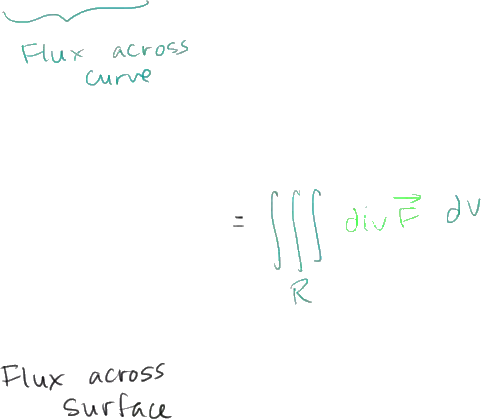 Flux across
curve
= ∭ div F⃗ dv
R
Flux across
surface